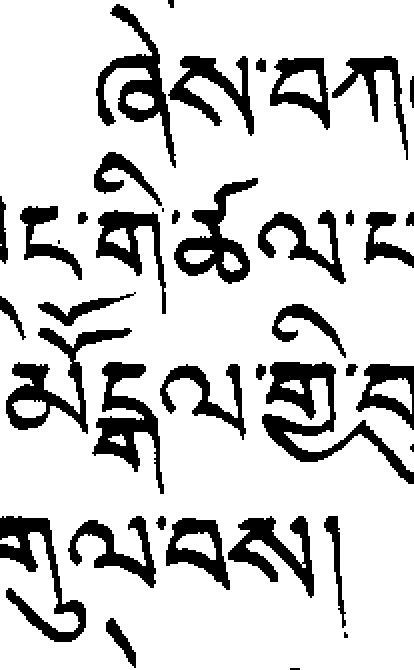 ཞེས་བཀ
ང་གི་ཚལ་ད
མཽདྒལ་གྱི་བ
གུལ་བས།